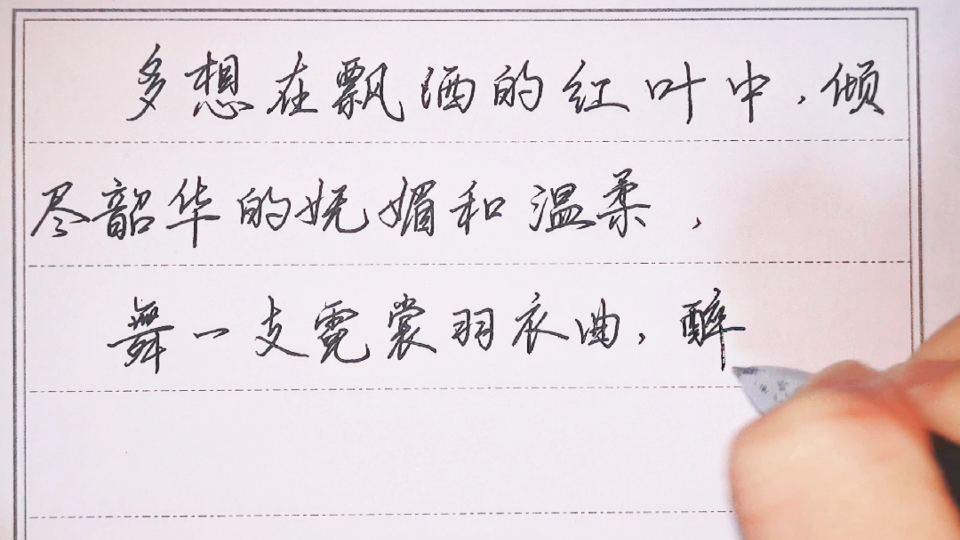 多想在飘洒的红叶中，倾
尽韶华的妩媚和温柔，
舞一支霓裳羽衣曲，醉